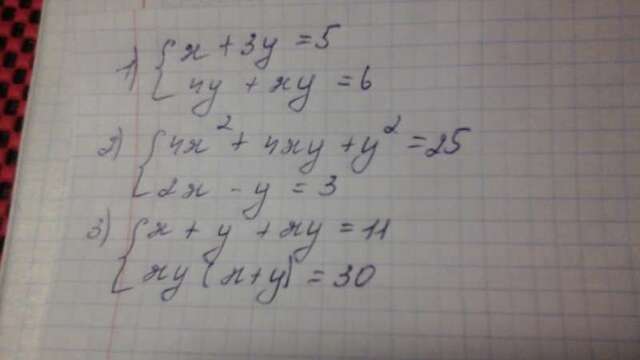 1) { x + 3y = 5
4y + xy = 6
2) { 4x² + 4xy + y² = 25
2x - y = 3
3) { x + y + xy = 11
xy (x+y) = 30